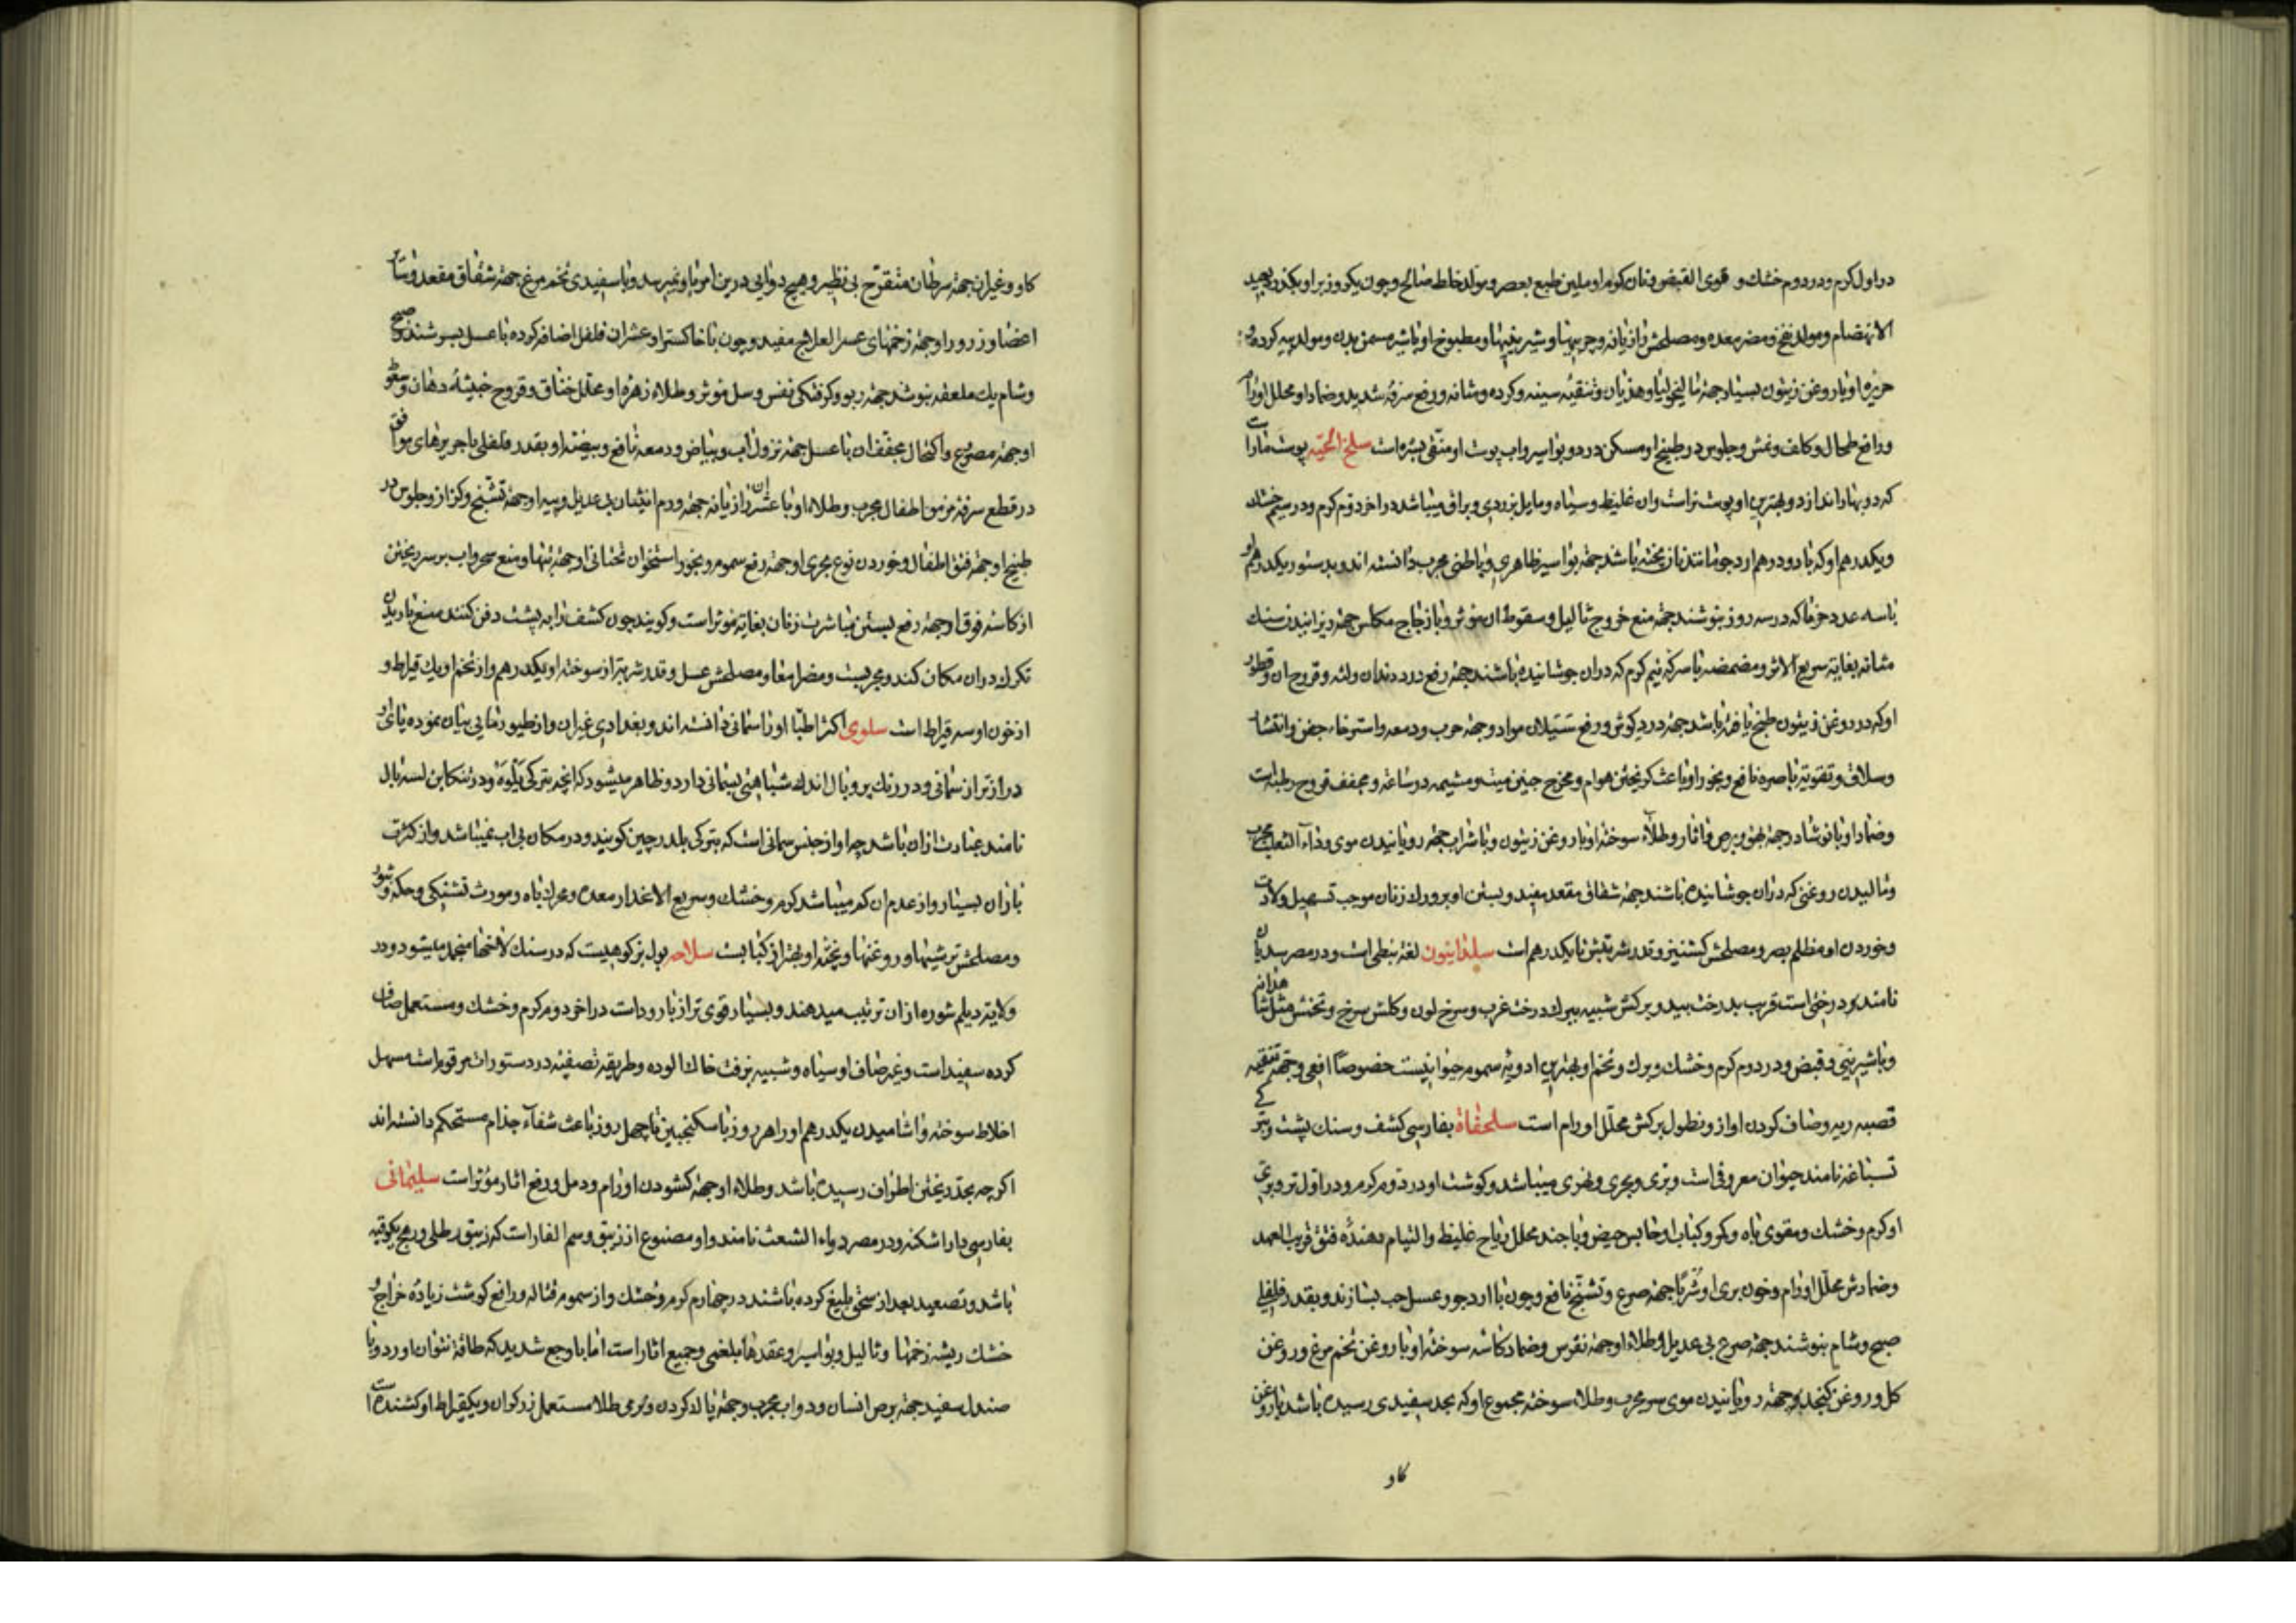 در اول کرم ودر دوم خشك و قوی القبض ونان کرم او ملین طبع بعصر ومولد خلط صالح وچون یکروز براو بکذرد بعید
الانهضام ومولد نفخ ومضر معده ومصلحش رازیانه وچربیها وشیرینیها ومطبوخ او باشیر مسمن بدن ومولد پیه کرده و
حریرۀ او باروغن زیتون بسیار جهة مالیخولیا وهذیان وتنقیۀ سینه وکرده ومثانه ورفع سرفۀ شدید وضماد او محلل اورام
ورافع طحال وکلف ونمش وجلوس در طبیخ او مسکن درد بواسیر واب پوست او منقی بشره است سلخ الحیّه پوست مارا
که در بهار اندازد وبهترین او پوست نر است وان غلیظ وسیاه ومایل بزردی وبراق میباشد در اخر دوّم کرم ودر سیم خشك
ویکدرهم او که بادو درهم ارد جو مانند نان پخته باشند جهة بواسیر ظاهری وباطنی مجرب دانسته اند وبدستور یکدرهم او
باسه عدد خرما که در سه روز بنوشند جهة منع خروج ثالیل وسقوط ان موثر وبا زجاج مکلس جهة ریزانیدن سنك
مثانه بغایة سریع الاثر ومضمضه باسرکۀ نیم کرم که دران جوشانیده باشند جهة رفع درد دندان ولثه وقروح ان وقطور
او که در روغن زیتون طبخ یافته باشد جهة درد کوش ورفع سیلان مواد وجهة جرب ودمعه واسترخاء جفن وانتشار
وسلاق وتقویة باصره نافع وبخور او باعث کریختن هوام ومخرج جنین میت ومشیمه در ساعة ومجفف قروح رطبه است
وضماد او بانوشادر جهة بهق وبرص واثار وطلاء سوختۀ او باروغن زیتون وبا شراب جهة رویانیدن موی وداء الثعلب مجرب
ومالیدن روغنی که دران جوشانیده باشند جهة شقاق مقعد مفید وبستن او بر ورك زنان موجب تسهیل ولادت
وخوردن او مظلم بصر ومصلحش کشنیز وقدر شربتش تا یکدرهم است سلدانیون لغة نبطی است ودر مصر سدیان
نامند ودرختی است قریب بدرخت بید وبرکش شبیه ببرك درخت غرب وسرخ لون وکلش سرخ وتخمش مثل شاهدانه
وباشیرینی وقبض ودر دوم کرم وخشك وبرك وتخم او بهترین ادویۀ سموم حیوانیست خصوصاً افعی وجهة تنقیه
قصبه ریه وصاف کردن اواز ونطول برکش محلّل اورام است سلحفاة بفارسی کشف وسنك پشت وبترکی
تسباغه نامند حیوان معروفی است وبری وبحری ونهری میباشد وکوشت او در دوم کرم ودر اول تر وبری
او کرم وخشك ومقوی باه وکمر وکباب او حابس حیض وبا جند محلل ریاح غلیظ والتیام دهندۀ فتق قریب العهد
وضمادش محلّل اورام وخون بری او شرباً جهة صرع وتشنج نافع وچون با ارد جو وعسل حب بسازند وبقدر فلفلی
صبح وشام بنوشند جهة صرع بی عدیل وطلاء او جهة نقرس وضماد کاسه سوختۀ او باروغن تخم مرغ وروغن
کل وروغن کنجد جهة رویانیدن موی سر مجرب وطلاء سوخته مجموع او که بحد سفیدی رسیده باشد باروغن
کاو
کاو وغیران جهة سرطان متقرّح بی نظیر وهیچ دوایی درین امر باو نمیرسد وبا سفیدی تخم مرغ جهة شقاق مقعد وسایر
اعضا وزرور او جهة زخمهای عسر العلاج مفید وچون با خاکستر او عشران فلفل اضافه کرده باعسل بسرشند وصبح
وشام یك ملعقه بنوشند جهة ربو وکرفتکی نفس وسل موثر وطلاء زهرۀ او محلل خناق وقروح خبیثۀ دهان وسعوط
او جهة مصروع واکتحال مجفف ان باعسل جهة نزول اب وبیاض ودمعه نافع وبیضۀ او بقدر فلفلی با حریرهای موافق
در قطع سرفۀ مزمن اطفال مجرب وطلاء او با عشر ان رازیانه جهة ورم انثیان بی عدیل وپیه او جهة تشنج وکزاز وجلوس در
طبیخ او جهة فتق اطفال وخوردن نوع بحری او جهة رفع سموم وبخور استخوان تحتانی او جهة تبها ومنع سحر واب بر سر ریختن
از کاسه فوق او جهة رفع بستن مباشرت زنان بغایة موثر است وکویند چون کشف را به پشت دفن کنند منع باریدن
تکرك دران مکان کند ومجربست ومضر امعا ومصلحش عسل وقدر شربة از سوخته او یکدرهم واز تخم او یك قیراط و
از خون او سه قیراط است سلوی اکثر اطبّا او را سمانی دانسته اند وبغدادی غیران واز طیور مایی بیان نموده پای او
دراز تر از سمانی ودر رنك پر وبال اندك شباهتی بسمانی دارد وظاهر میشود که انچه بترکی یلوه ودر تنکابن لسنه بال
نامند عبارت ازان باشد چه او از جنس سمانی است که بترکی بلدرچین کویند ودر مکان بی اب نمیباشد واز کثرت
باران بسیار واز عدم ان کم میباشد کرم وخشك وسریع الانحدار معده ومحرك باه ومورث تشنکی وحکه وبثور
ومصلحش ترشیها وروغنها وپختۀ او بهتر از کبابست سلاحه بول بز کوهیست که در سنك لاخها منجمد میشود ودر
ولایة دیلم شوره ازان ترتیب میدهند وبسیار قوی تر از باروداست در اخر دوم کرم وخشك ومستعمل صاف
کرده سفید است وغیر صاف او سیاه وشبیه بزفت خاك الوده وطریقه تصفیه در دستورات مرقوم است مسهل
اخلاط سوخته واشامیدن یکدرهم او را هر روز باسکنجبین تا چهل روز باعث شفاء جذام مستحکم دانسته اند
اکرچه بحد ریختن اطراف رسیده باشد وطلاء او جهة کشودن اورام ودمل ورفع اثار مؤثر است سلیمانی
بفارسی داراشکنه ودر مصر دواء الشعث نامند واو مصنوع از زیبق وسم الفار است که زیبق رطلی ورهج یکوقیه
باشد وتصعید بعد از سحق بلیغ کرده باشند در چهارم کرم وخشك واز سموم قتاله ورافع کوشت زیاده خراج و
خشك ریشه زخمها وثالیل وبواسیر وعقدهاء بلغمی وجمیع اثار است اما با وجع شدید که طاقة نتوان اورد وبا
صندل سفید جهة برص انسان ودواب مجرب وجهة پاك کردن وجرمی طلا مستعمل زرکران ویکقیراط او کشنده است